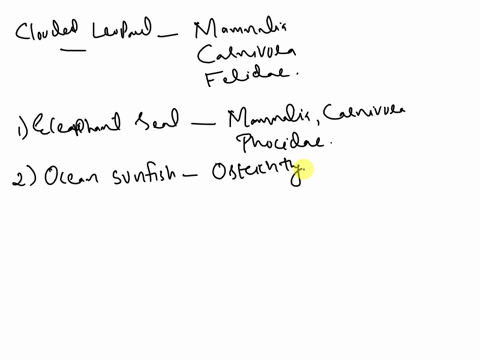 Clouded Leopard – Mammalia
Carnivora
Felidae.
1) Eleaphant Seal – Mammalia, Carnivora
Phocidae.
2) Ocean sunfish – Osteichthy